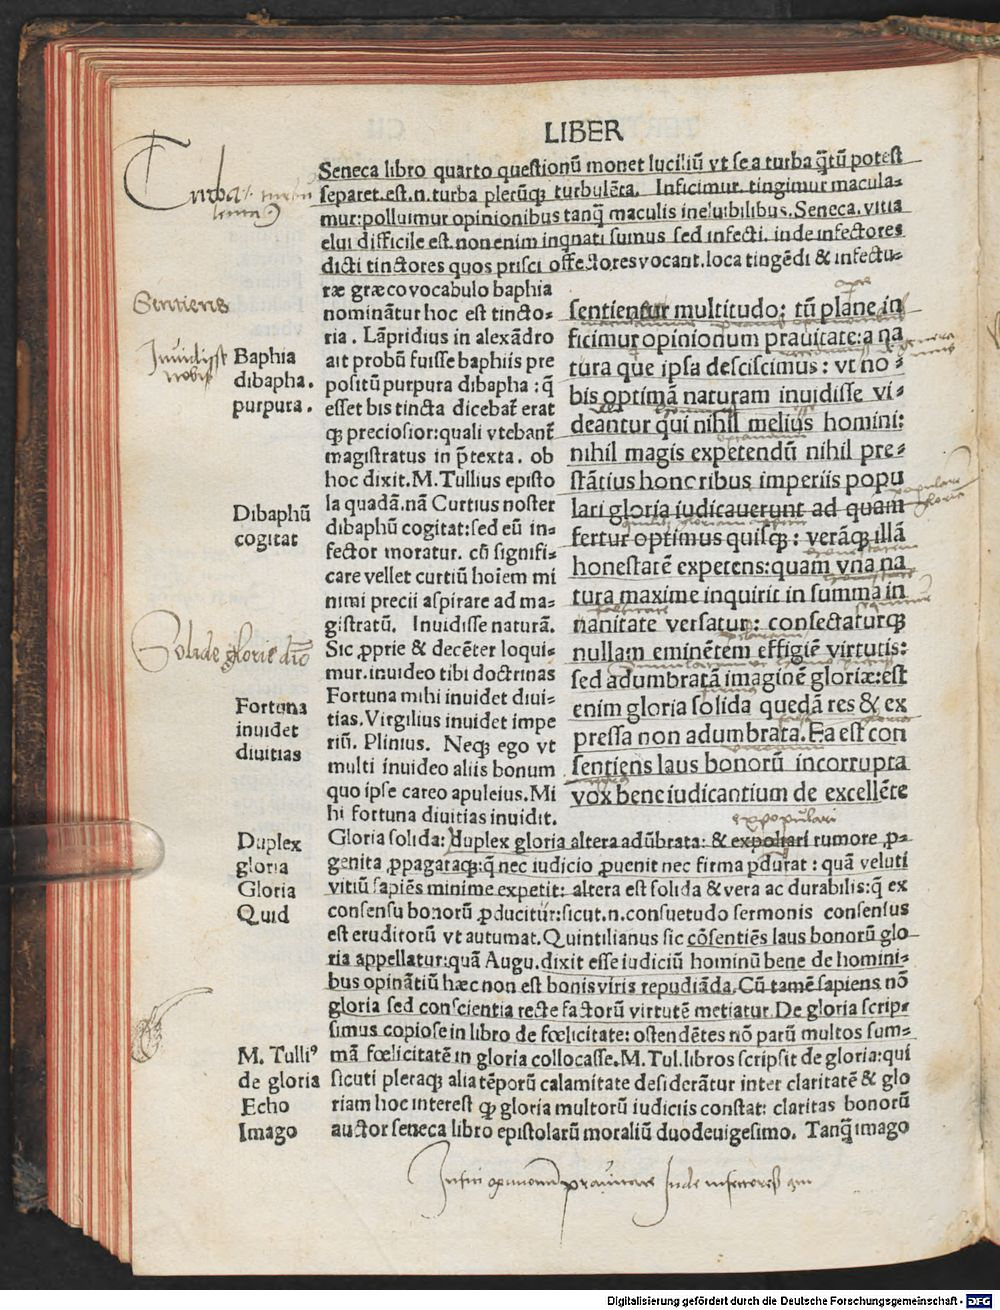 LIBER
Seneca libro quarto questionū monet luciliū vt se a turba q̃tū potest
separet.est.n.turba plerūqȝ turbulēta. Inficimur. tingimur macula-
mur:polluimur opinionibus tanq̃ maculis ineluibilibus.Seneca.vitia
elui difficile est.non enim inqnati sumus sed infecti. inde infectores
dicti tinctores quos prisci offectores vocant.loca tingēdi & infectu-
ræ græco vocabulo baphia
nominātur hoc est tincto-
ria. Lāpridius in alexādro
ait probū fuisse baphiis pre
positū purpura dibapha:q̃
esset bis tincta dicebat̃ erat
qȝ preciosior:quali vtebant̃
magistratus in p̃texta. ob
hoc dixit.M.Tullius episto
la quadā.nā Curtius noster
dibaphū cogitat:sed eū in-
fector moratur. cū signifi-
care vellet curtiū hoiem mi
nimi precii aspirare ad ma-
gistratū. Inuidisse naturā.
Sic ꝓprie & decēter loqui-
mur.inuideo tibi doctrinas
Fortuna mihi inuidet diui-
tias.Virgilius inuidet impe
riū. Plinius. Neqȝ ego vt
multi inuideo aliis bonum
quo ipse careo apuleius.Mi
hi fortuna diuitias inuidit.
sentientur multitudo: tū plane in
ficimur opinionum prauitate:a na
tura que ipsa desciscimus: vt no-
bis optimā naturam inuidisse vi-
deantur qui nihil melius homini:
nihil magis expetendū nihil pre-
stātius honoribus imperiis popu
lari gloria iudicauerunt ad quam
fertur optimus quisqȝ: verāqȝ illā
honestatē expetens:quam vna na
tura maxime inquirit in summa in
nanitate versatur: consectaturqȝ
nullam eminētem effigiē virtutis:
sed adumbratā imaginē gloriæ:est
enim gloria solida quedā res & ex
pressa non adumbrata.Ea est con
sentiens laus bonorū incorrupta
vox bene iudicantium de excellēte
Gloria solida: duplex gloria altera adūbrata: & expoliari rumore ꝓ-
genita ꝓpagataqȝ:q̃ nec iudicio ꝓuenit nec firma ꝑdurat: quā veluti
vitiū sapiēs minime expetit: altera est solida & vera ac durabilis:q̃ ex
consensu bonorū ꝓducitur:sicut.n.consuetudo sermonis consensus
est eruditorū vt autumat.Quintilianus sic cōsentiēs laus bonorū glo
ria appellatur:quā Augu.dixit esse iudiciū hominū bene de homini-
bus opinātiū hæc non est bonis viris repudiāda.Cū tamē sapiens nō
gloria sed conscientia recte factorū virtutē metiatur.De gloria scrip-
simus copiose in libro de fœlicitate: ostendētes nō parū multos sum-
mā fœlicitatē in gloria collocasse.M.Tul.libros scripsit de gloria:qui
sicuti pleraqȝ alia tēporū calamitate desiderātur inter claritatē & glo
riam hoc interest qȝ gloria multorū iudiciis constat: claritas bonorū
auctor seneca libro epistolarū moraliū duodeuigesimo. Tanq̃ imago
Turba
Sentiens
Inuidisse
nobis
Baphia
dibapha.
purpura.
Dibaphū
cogitat
Solide glorie
Fortuna
inuidet
diuitias
Duplex
gloria
Gloria
Quid
M. Tulliꝰ
de gloria
Echo
Imago
Digitalisierung gefördert durch die Deutsche Forschungsgemeinschaft - DFG